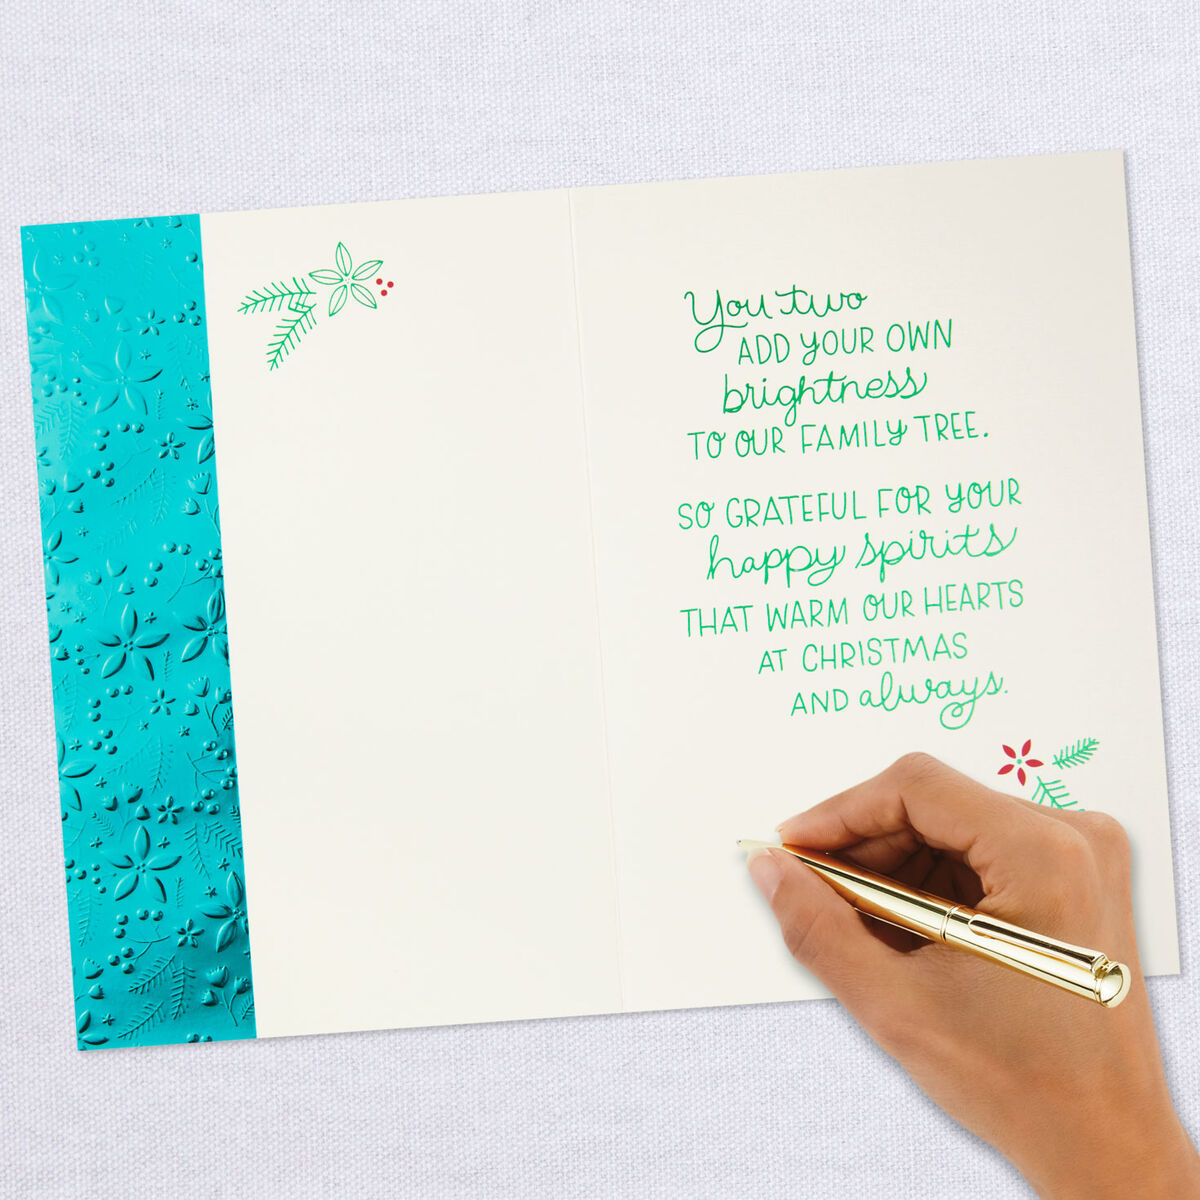 You two
ADD YOUR OWN
brightness
TO OUR FAMILY TREE.
SO GRATEFUL FOR YOUR
happy spirits
THAT WARM OUR HEARTS
AT CHRISTMAS
AND always.